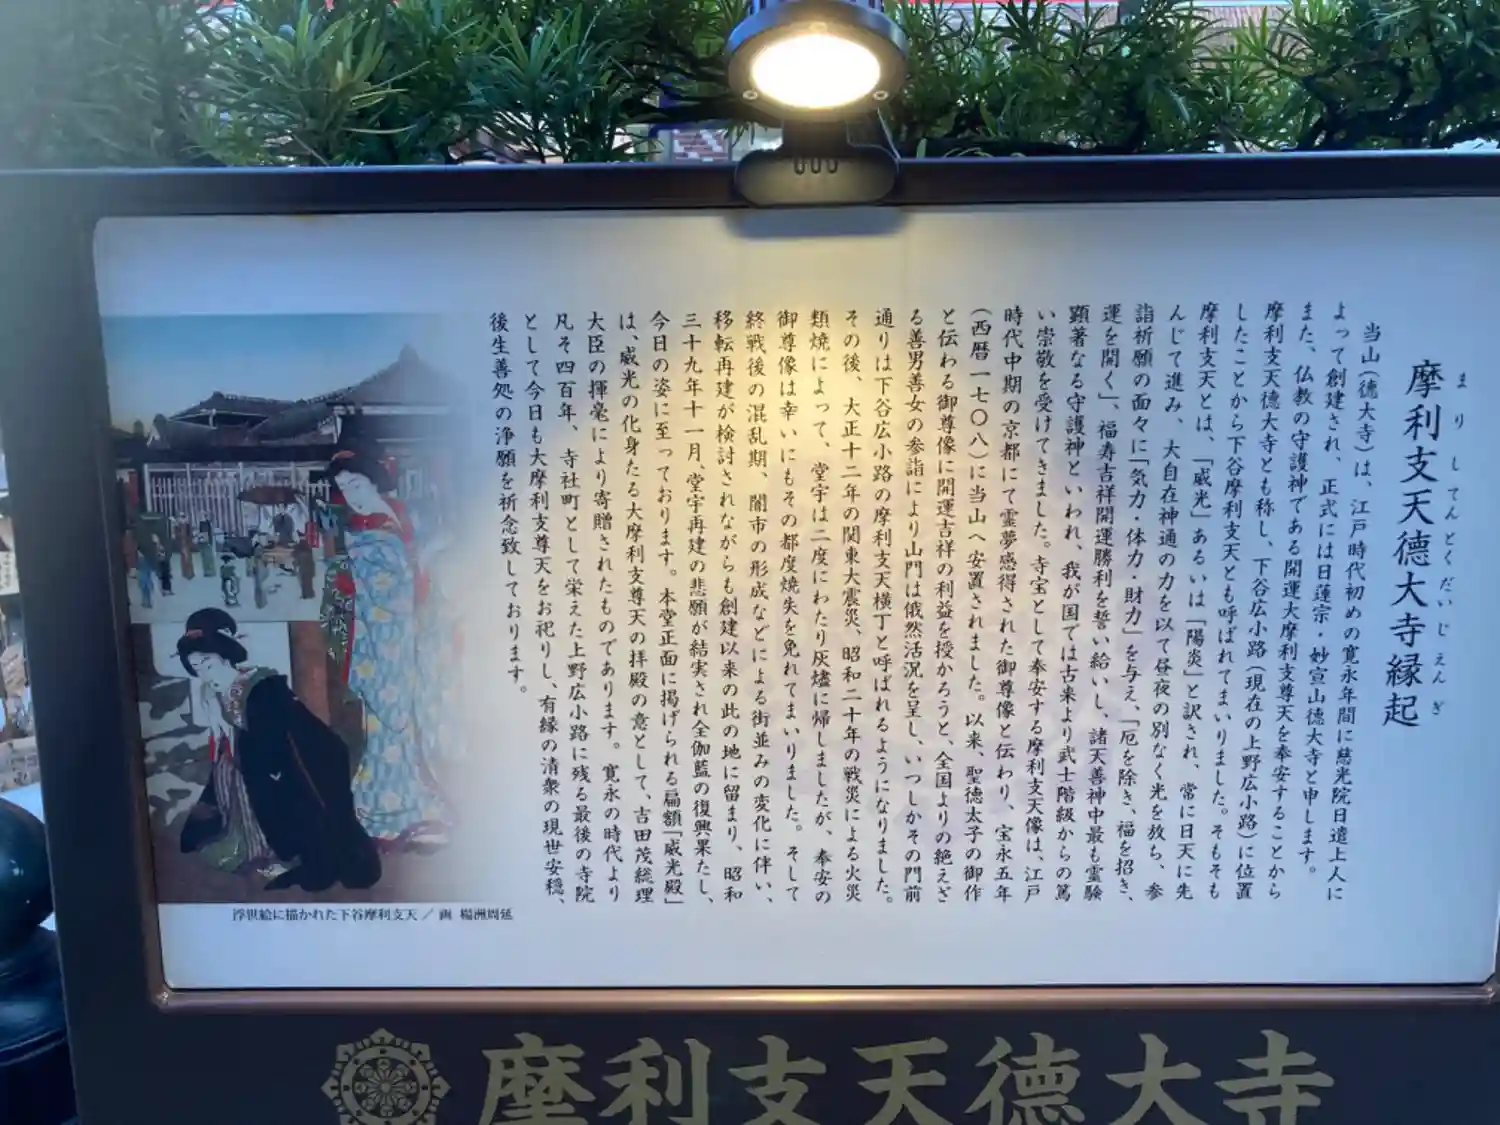 摩利支天德大寺縁起
まりしてんとくだいじえんぎ
当山(德大寺)は、江戸時代初めの寛永年間に慈光院日遣上人に
よって創建され、正式には日蓮宗・妙宣山德大寺と申します。
また、仏教の守護神である開運大摩利支尊天を奉安することから
摩利支天德大寺とも称し、下谷広小路(現在の上野広小路)に位置
したことから下谷摩利支天とも呼ばれてまいりました。そもそも
摩利支天とは、「威光」あるいは「陽炎」と訳され、常に日天に先
んじて進み、大自在神通の力を以て昼夜の別なく光を放ち、参
詣祈願の面々に「気力・体力・財力」を与え、「厄を除き、福を招き、
運を開く」、福寿吉祥開運勝利を誓い給いし、諸天善神中最も霊験
顕著なる守護神といわれ、我が国では古来より武士階級からの篤
い崇敬を受けてきました。寺宝として奉安する摩利支天像は、江戸
時代中期の京都にて霊夢感得された御尊像と伝わり、宝永五年
(西暦一七〇八)に当山へ安置されました。以来、聖徳太子の御作
と伝わる御尊像に開運吉祥の利益を授かろうと、全国よりの絶えざ
る善男善女の参詣により山門は俄然活況を呈し、いつしかその門前
通りは下谷広小路の摩利支天横丁と呼ばれるようになりました。
その後、大正十二年の関東大震災、昭和二十年の戦災による火災
類焼によって、堂宇は二度にわたり灰燼に帰しましたが、奉安の
御尊像は幸いにもその都度焼失を免れてまいりました。そして
終戦後の混乱期、闇市の形成などによる街並みの変化に伴い、
移転再建が検討されながらも創建以来の此の地に留まり、昭和
三十九年十一月、堂宇再建の悲願が結実され全伽藍の復興果たし、
今日の姿に至っております。本堂正面に掲げられる扁額「威光殿」
は、威光の化身たる大摩利支尊天の拝殿の意として、吉田茂総理
大臣の揮毫により寄贈されたものであります。寛永の時代より
凡そ四百年、寺社町として栄えた上野広小路に残る最後の寺院
として今日も大摩利支尊天をお祀りし、有縁の清衆の現世安穏、
後生善処の浄願を祈念致しております。
浮世絵に描かれた下谷摩利支天／画 楊洲周延
摩利支天德大寺